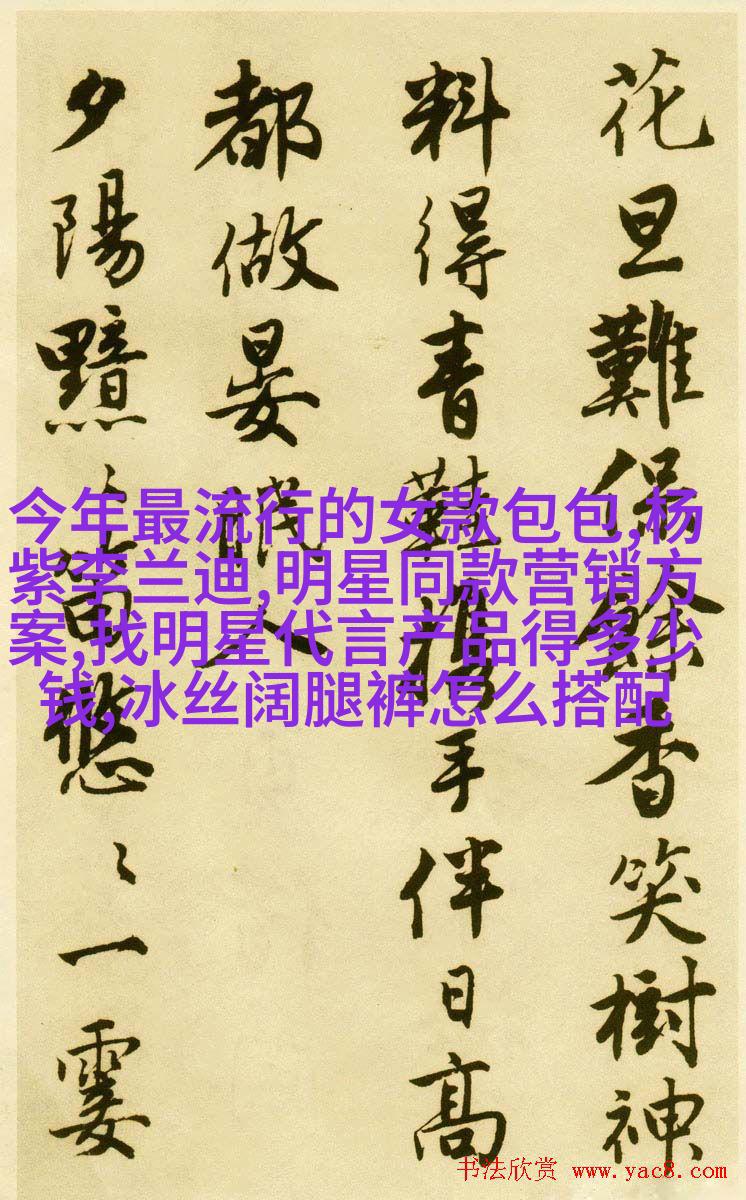 花旦難保餘香笑樹神
料得青鞋携手伴日高
都做晏眠人
夕陽黯〻笛悠〻一霎
今年最流行的女款包包,杨
紫李兰迪,明星同款营销方
案,找明星代言产品得多少
钱,冰丝阔腿裤怎么搭配
书法欣赏 www.yac8.com